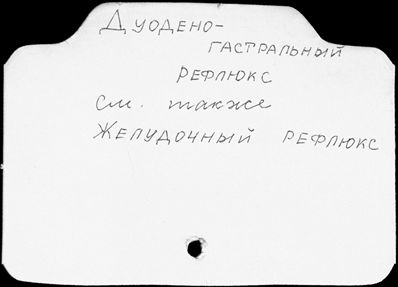 Дуодено-
гастральный
рефлюкс
см. также
Желудочный рефлюкс